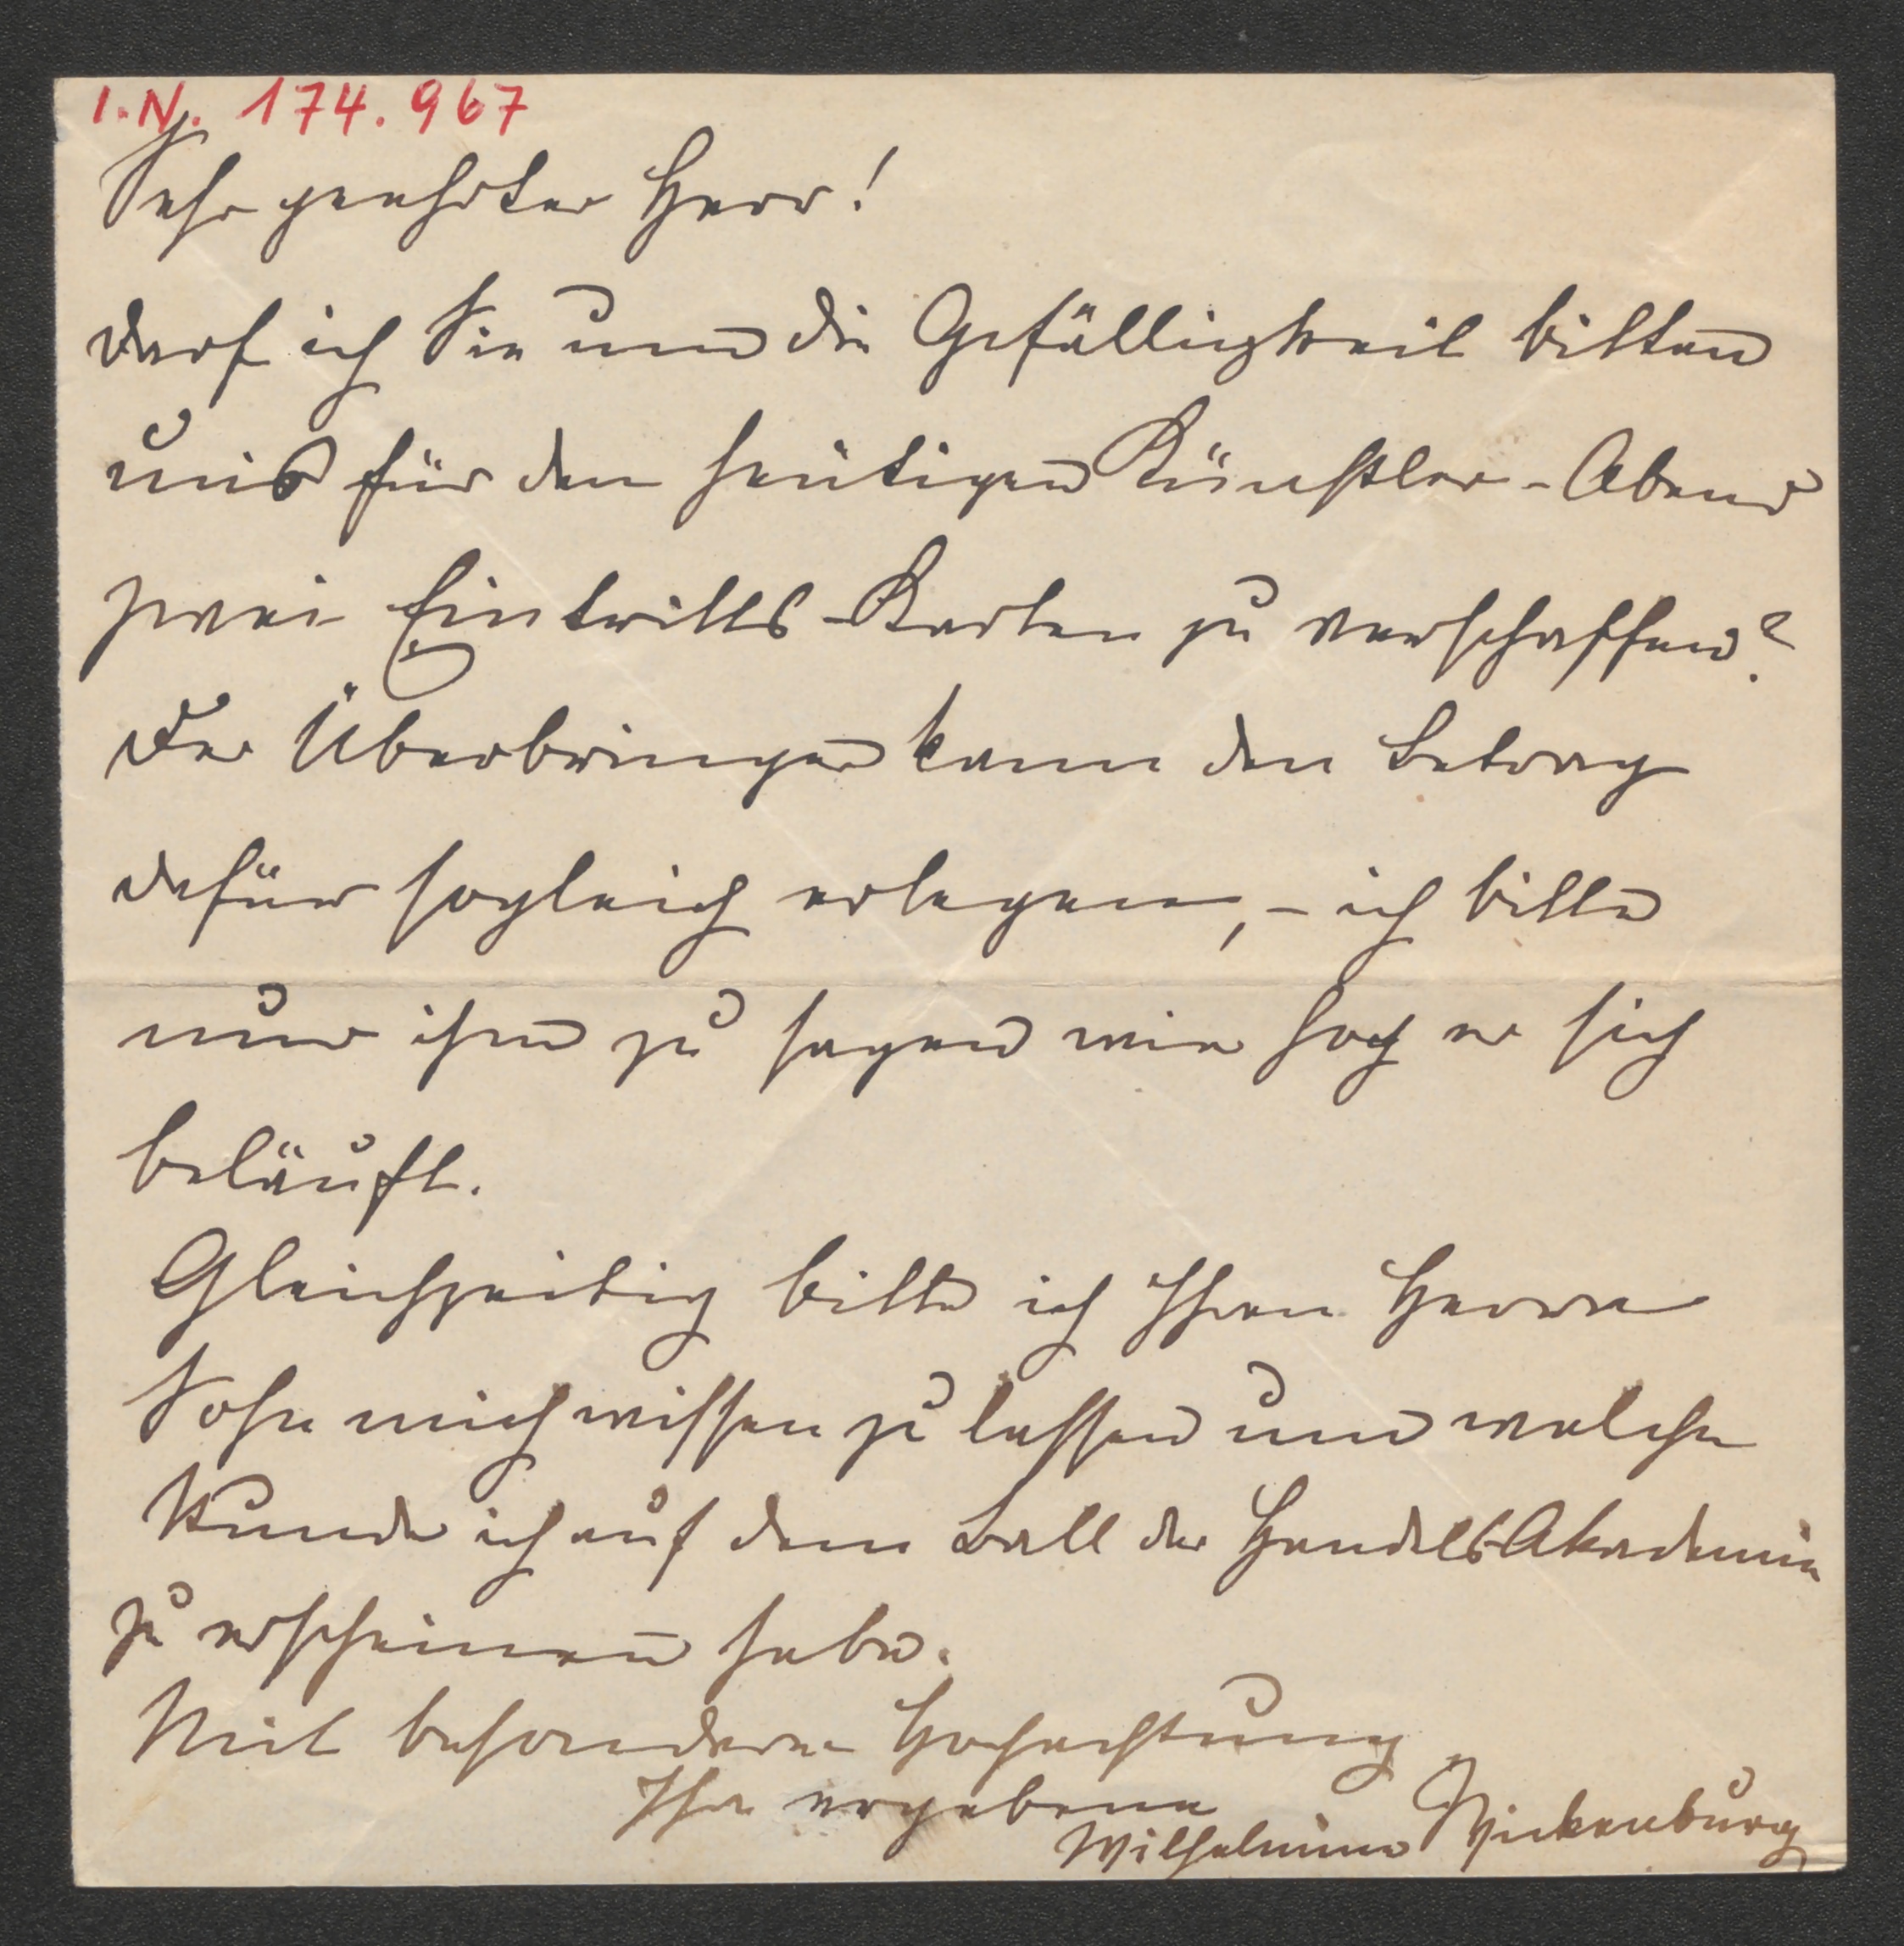 I.N. 174.967
Sehr geehrter Herr!
Darf ich Sie um die Gefälligkeit bitten
uns für den heutigen Künstler-Abend
zwei Eintritts-Karten zu verschaffen?
Der Überbringer kann den Betrag
dafür sogleich erlegen, - ich bitte
nur ihm zu sagen wie hoch er sich
beläuft.
Gleichzeitig bitte ich Ihren Herrn
Sohn mich wissen zu lassen um welche
Stunde ich auf dem Ball der Handels-Akademie
zu erscheinen habe.
Mit besonderer Hochachtung
Ihre ergebene
Wilhelmine Wickenburg